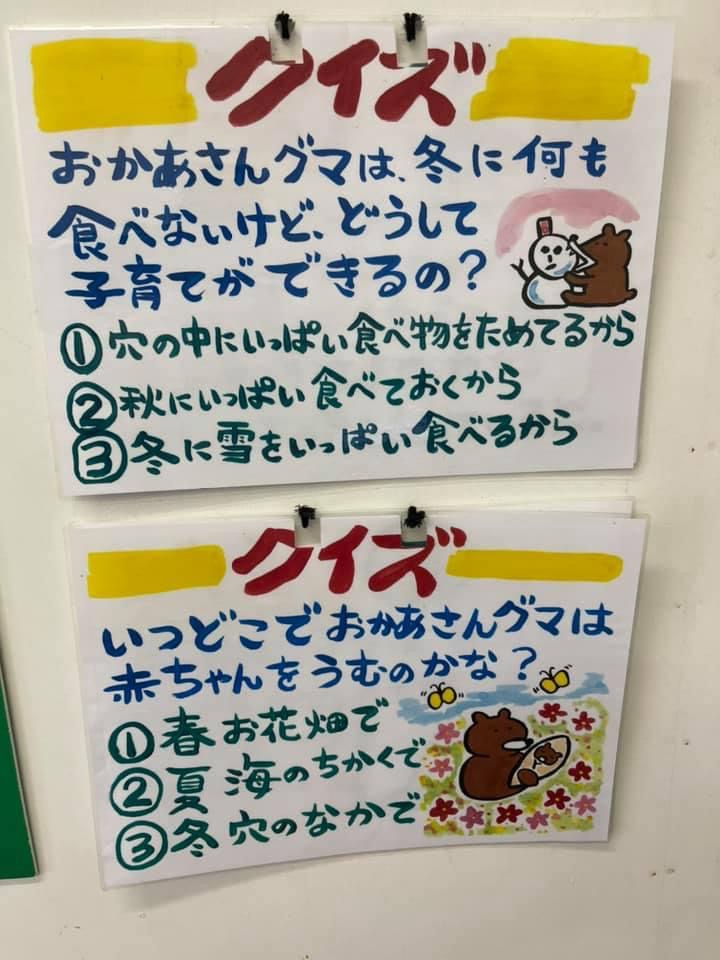 クイズ
おかあさんグマは、冬に何も
食べないけど、どうして
子育てができるの？
①穴の中にいっぱい食べ物をためてるから
②秋にいっぱい食べておくから
③冬に雪をいっぱい食べるから
クイズ
いつどこでおかあさんグマは
赤ちゃんをうむのかな？
①春お花畑で
②夏海のちかくで
③冬穴のなかで